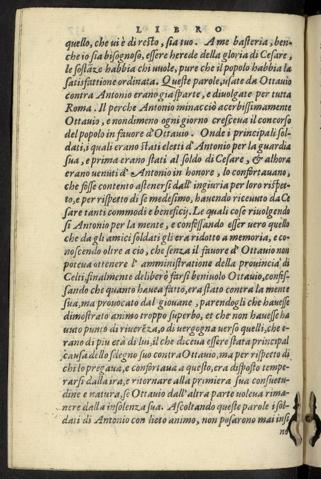 LIBRO
quello, che vi è di resto, sia tuo. A me basteria, ben-
che io sia bisognoso, essere herede della gloria di Cesare,
le sostãze habbia chi vuole, pure che il popolo habbia la
satisfattione ordinata. Queste parole, usate da Ottavio
contra Antonio erano gia sparte, e divolgate per tutta
Roma. Il perche Antonio minacciò acerbissimamente
Ottavio, e nondimeno ogni giorno cresceva il concorso
del popolo in favore d'Ottavio. Onde i principali sol-
dati, i quali erano stati eletti d'Antonio per la guardia
sua, e prima erano stati al soldo di Cesare, & alhora
erano venuti d'Antonio in honore, lo confortavano,
che fosse contento astenersi dall'ingiuria per loro rispet-
to, e per rispetto di se medesimo, havendo ricevuto da Ce
sare tanti commodi e beneficij. Le quali cose rivolgendo
si Antonio per la mente, e confessando esser vero quello
che da gli amici soldati gli era ridotto a memoria, e co-
noscendo oltre a ciò, che senza il favore d'Ottavio non
poteva ottenere l'amministratione della provincia di
Celti, finalmente deliberò farsi benivolo Ottavio, confes-
sando che quanto haveva fatto, era stato contra la mente
sua, ma provocato dal giovane, parendogli che havesse
dimostrato animo troppo superbo, et che non havesse ha
vuto punto di riverẽza, o di vergogna verso quelli, che e-
rano di piu età di lui, il che diceva essere stata principal
causa dello sdegno suo contra Ottavio, ma per rispetto di
chi lo pregava, e confortava a questo, era disposto tempe-
rarsi dalla ira, e ritornare alla primiera sua consuetu-
dine e natura, se Ottavio dall'altra parte voleva rima-
nere dalla insolenza sua. Ascoltando queste parole i sol-
dati di Antonio con lieto animo, non posarono mai insi
no